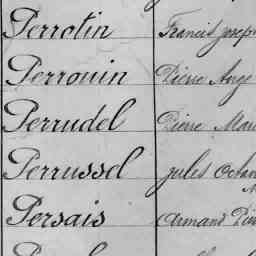 Perrotin Francis Joseph
Perrouin Pierre Ange
Perrudel Pierre Marie
Perrussel Jules Octave
Persais Armand